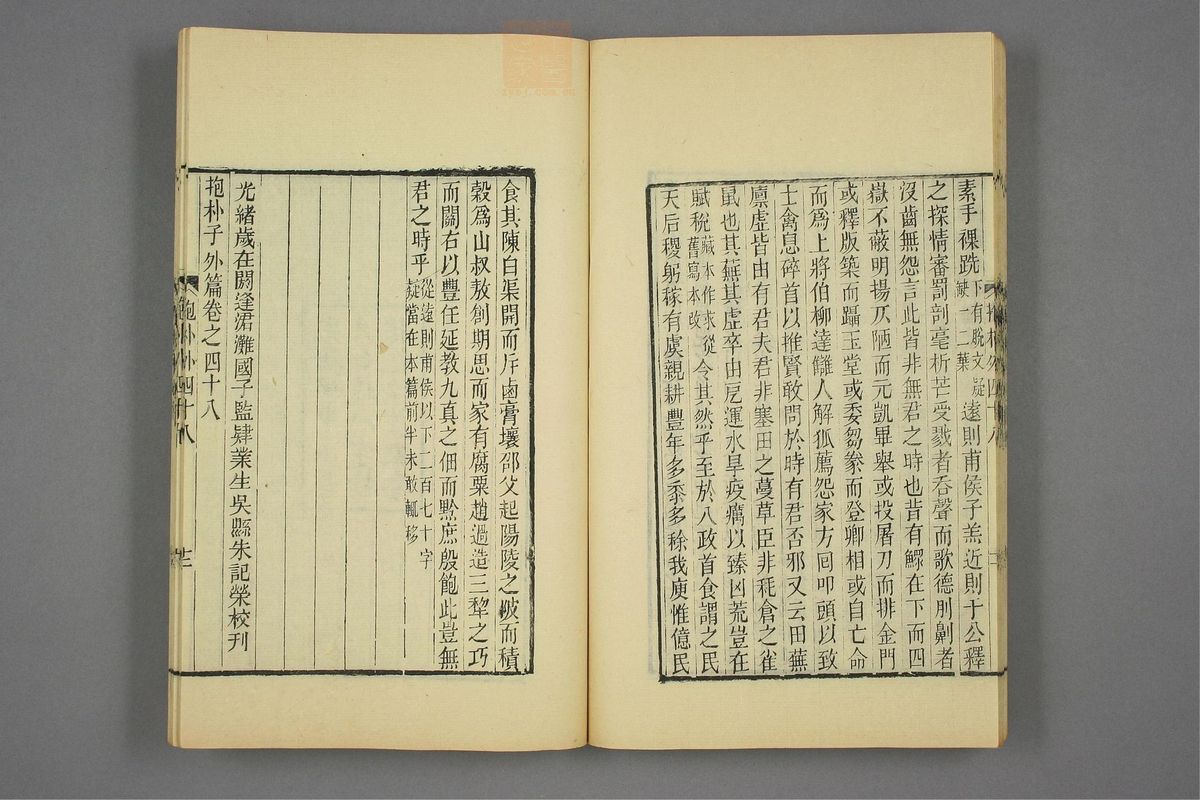 素手裸跣下有脫文疑缺一二葉遠則甫侯子羔近則于公釋
之探情審罰剖毫析芒受戮者吞聲而歌德刖劓者
沒齒無怨言此皆非無君之時也昔有鰥在下而四
嶽不蔽明揚仄陋而元凱畢舉或投屠刀而排金門
或釋版築而躡玉堂或委芻豢而登卿相或自亡命
而爲上將伯柳達讎人解狐薦怨家方回叩頭以致
士禽息碎首以推賢敢問於時有君否邪又云田蕪
廩虛皆由有君夫君非塞田之蔓草臣非秏倉之雀
鼠也其蕪其虛卒由戹運水旱疫癘以臻凶荒豈在
賦稅藏本作求從舊寫本改令其然乎至於八政首食謂之民
天后稷躬稼有虞親耕豐年多黍多稌我庾惟億民
食其陳白渠開而斥鹵膏壤邵父起陽陵之陂而積
穀爲山叔敖創期思而家有腐粟趙過造三犂之巧
而關右以豐任延敎九真之佃而黔庶殷飽此豈無
君之時乎從遠則甫侯以下二百七十字疑當在本篇前半未敢輒移
光緒歲在閼逢涒灘國子監肄業生吳縣朱記榮校刊
抱朴子外篇卷之四十八
抱朴外四十八